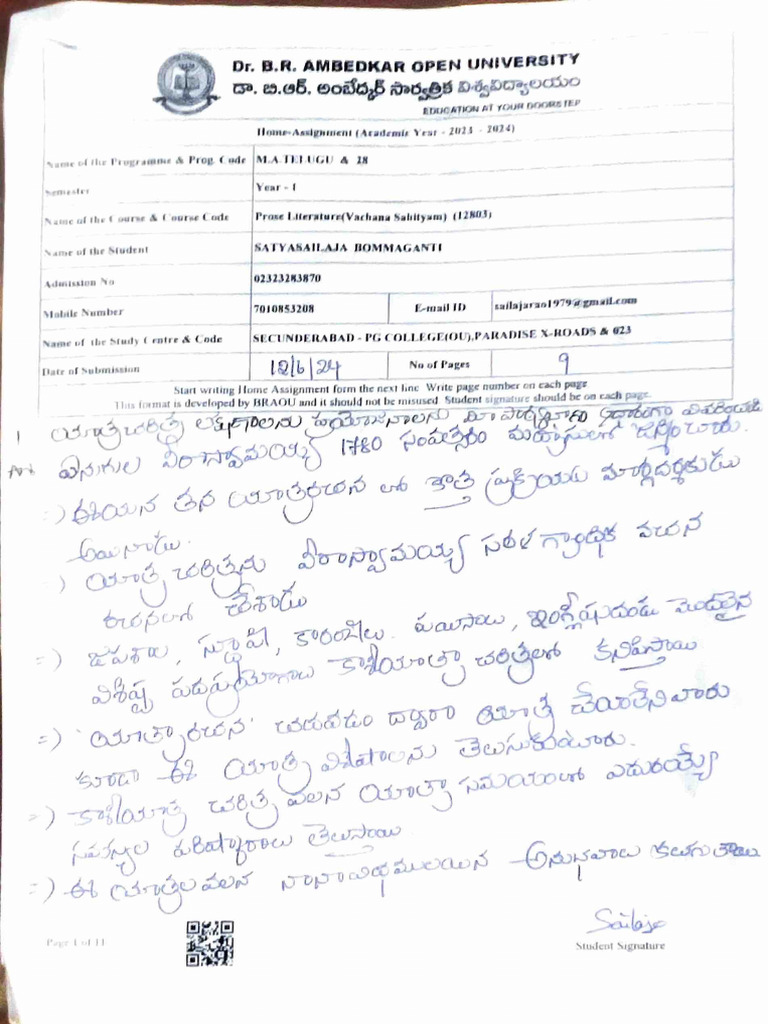 Dr. B.R. AMBEDKAR OPEN UNIVERSITY
డా. బి.ఆర్. అంబేద్కర్ సార్వత్రిక విశ్వవిద్యాలయం
EDUCATION AT YOUR DOORSTEP
Home-Assignment (Academic Year - 2023 - 2024)
Name of the Programme & Prog. Code M.A.TELUGU & 28
Semester Year - I
Name of the Course & Course Code Prose Literature(Vachana Sahityam) (12803)
Name of the Student SATYASAILAJA BOMMAGANTI
Admission No 02323283870
Mobile Number 7010853208 E-mail ID sailajarao1979@gmail.com
Name of the Study Centre & Code SECUNDERABAD - PG COLLEGE(OU),PARADISE X-ROADS & 023
Date of Submission 12/6/24 No of Pages 9
Start writing Home Assignment form the next line Write page number on each page
This format is developed by BRAOU and it should not be misused Student signature should be on each page.
1 యాత్రాచరిత్ర లక్షణాలను ప్రయోజనాలను మీ పాఠ్యభాగం ఆధారంగా వివరించండి
ఏనుగుల వీరాస్వామయ్య 1780 సంవత్సరం మద్రాసులో జన్మించారు.
=) ఈయన తన యాత్రారచన లో కొత్త ప్రక్రియకు మార్గదర్శకుడు
అయినాడు.
=) యాత్ర చరిత్రను వీరాస్వామయ్య సరళ గ్రాంథిక వచన
రచనలో చేశాడు
=) జపశాల, స్థూపి, కారంజీలు, పయిసాలు, ఇంగ్లీషుదండు మొదలైన
విశిష్ట పదప్రయోగాలు కాశీయాత్రా చరిత్రలో కనిపిస్తాయి
=) 'యాత్రారచన' చదువడం ద్వారా యాత్ర చేయలేనివారు
కూడా ఈ యాత్ర విశేషాలను తెలుసుకుంటారు.
=) కాశీయాత్ర చరిత్ర వలన యాత్రా సమయంలో ఎదురయ్యే
సమస్యల పరిష్కారాలు తెలుస్తాయి
=) ఈ యాత్రల వలన నానావిధములయిన అనుభవాలు కలుగుతాయి
Sailaja
Page 1 of 11
Student Signature